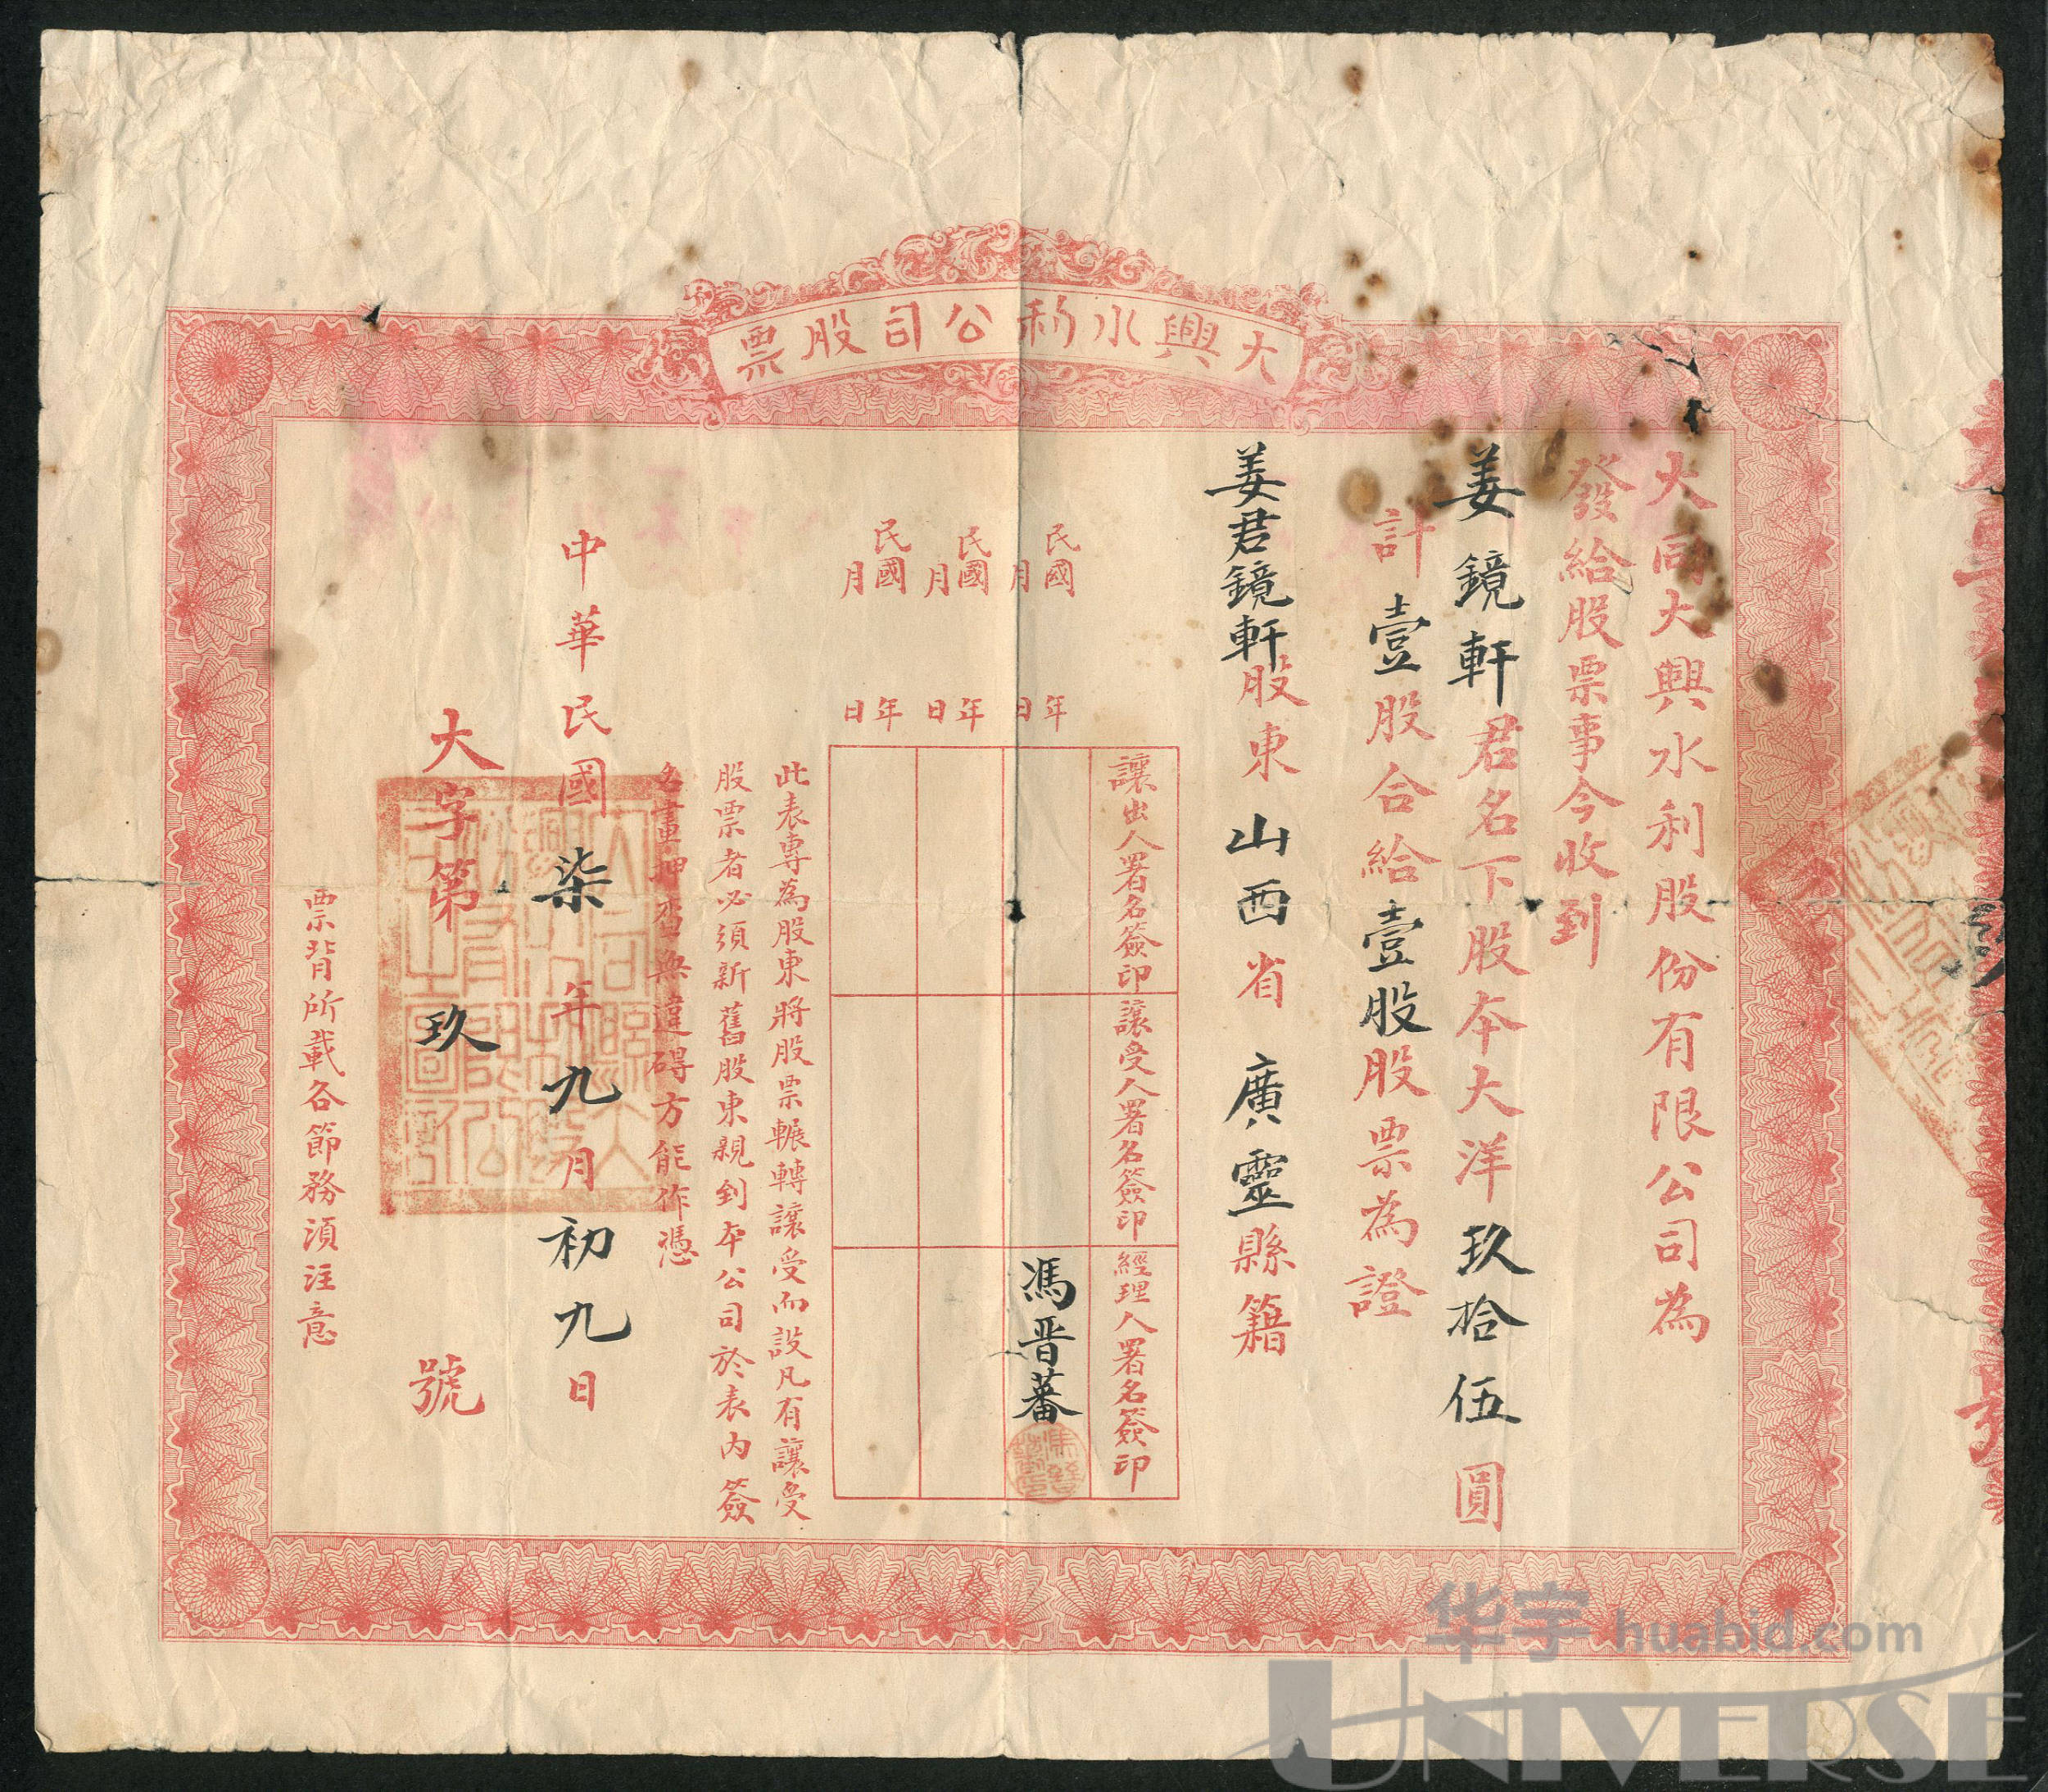 大興水利公司股票
大同大興水利股份有限公司為
發給股票事今收到
姜鏡軒君名下股本大洋玖拾伍圓
計壹股合給壹股股票為證
姜君鏡軒股東山西省廣靈縣籍
民國 年
月 日
民國 年
月 日
民國 年
月 日
讓出人署名簽印
讓受人署名簽印
經理人署名簽印
馮晋蕃
此表專為股東將股票輾轉讓受而設凡有讓受
股票者必須新舊股東親到本公司於表內簽
名畫押否與違碍方能作憑
中華民國柒年九月初九日
大字第玖號
票背所載各節務須注意
华宇 huabid.com
UNIVERSE